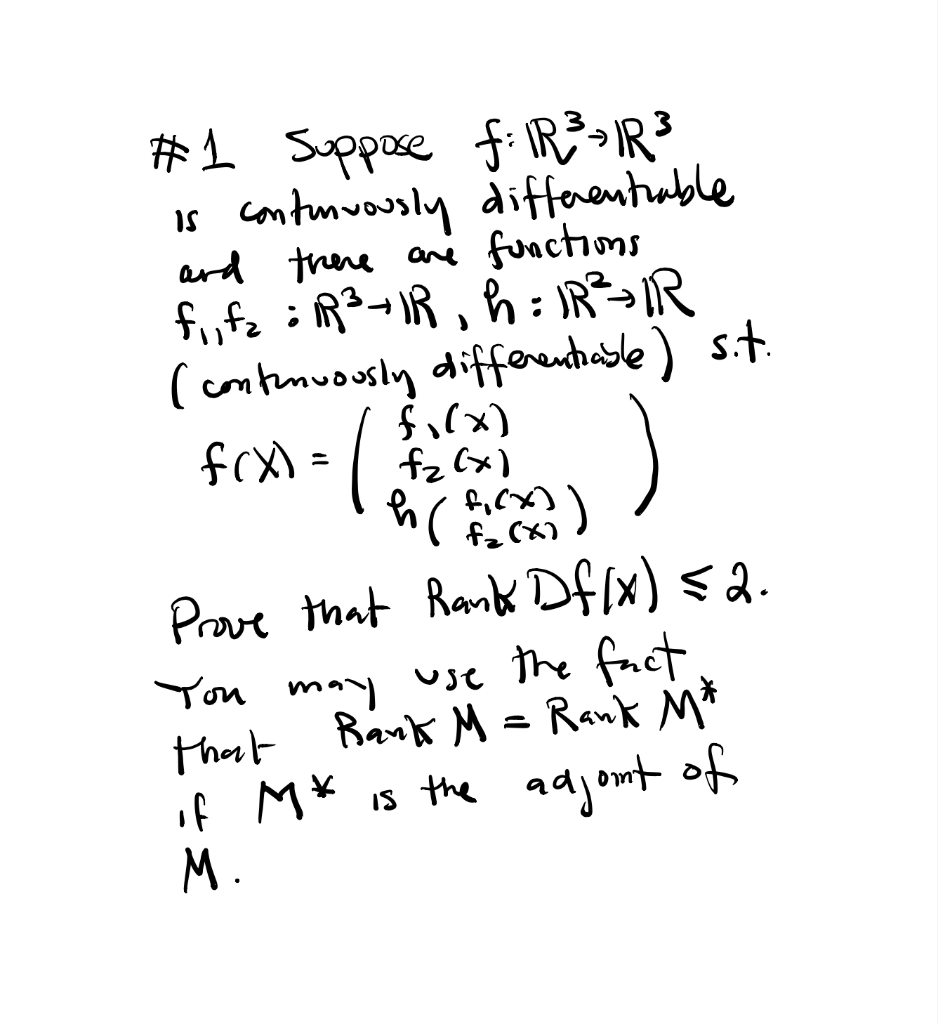 #1 Suppose f: ℝ³→ℝ³
is continuously differentiable
and there are functions
f₁,f₂ : ℝ³→ℝ, h: ℝ²→ℝ
(continuously differentiable) s.t.
f(x) = ( f₁(x)
f₂(x)
h( f₁(x)
f₂(x) ) )
Prove that Rank Df(x) ≤ 2.
You may use the fact
that Rank M = Rank M*
if M* is the adjoint of
M.